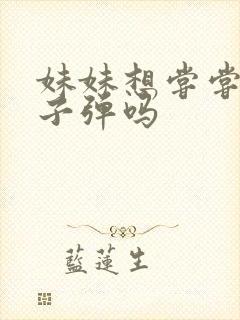 妹妹想尝尝
子弹吗
蓝莲生